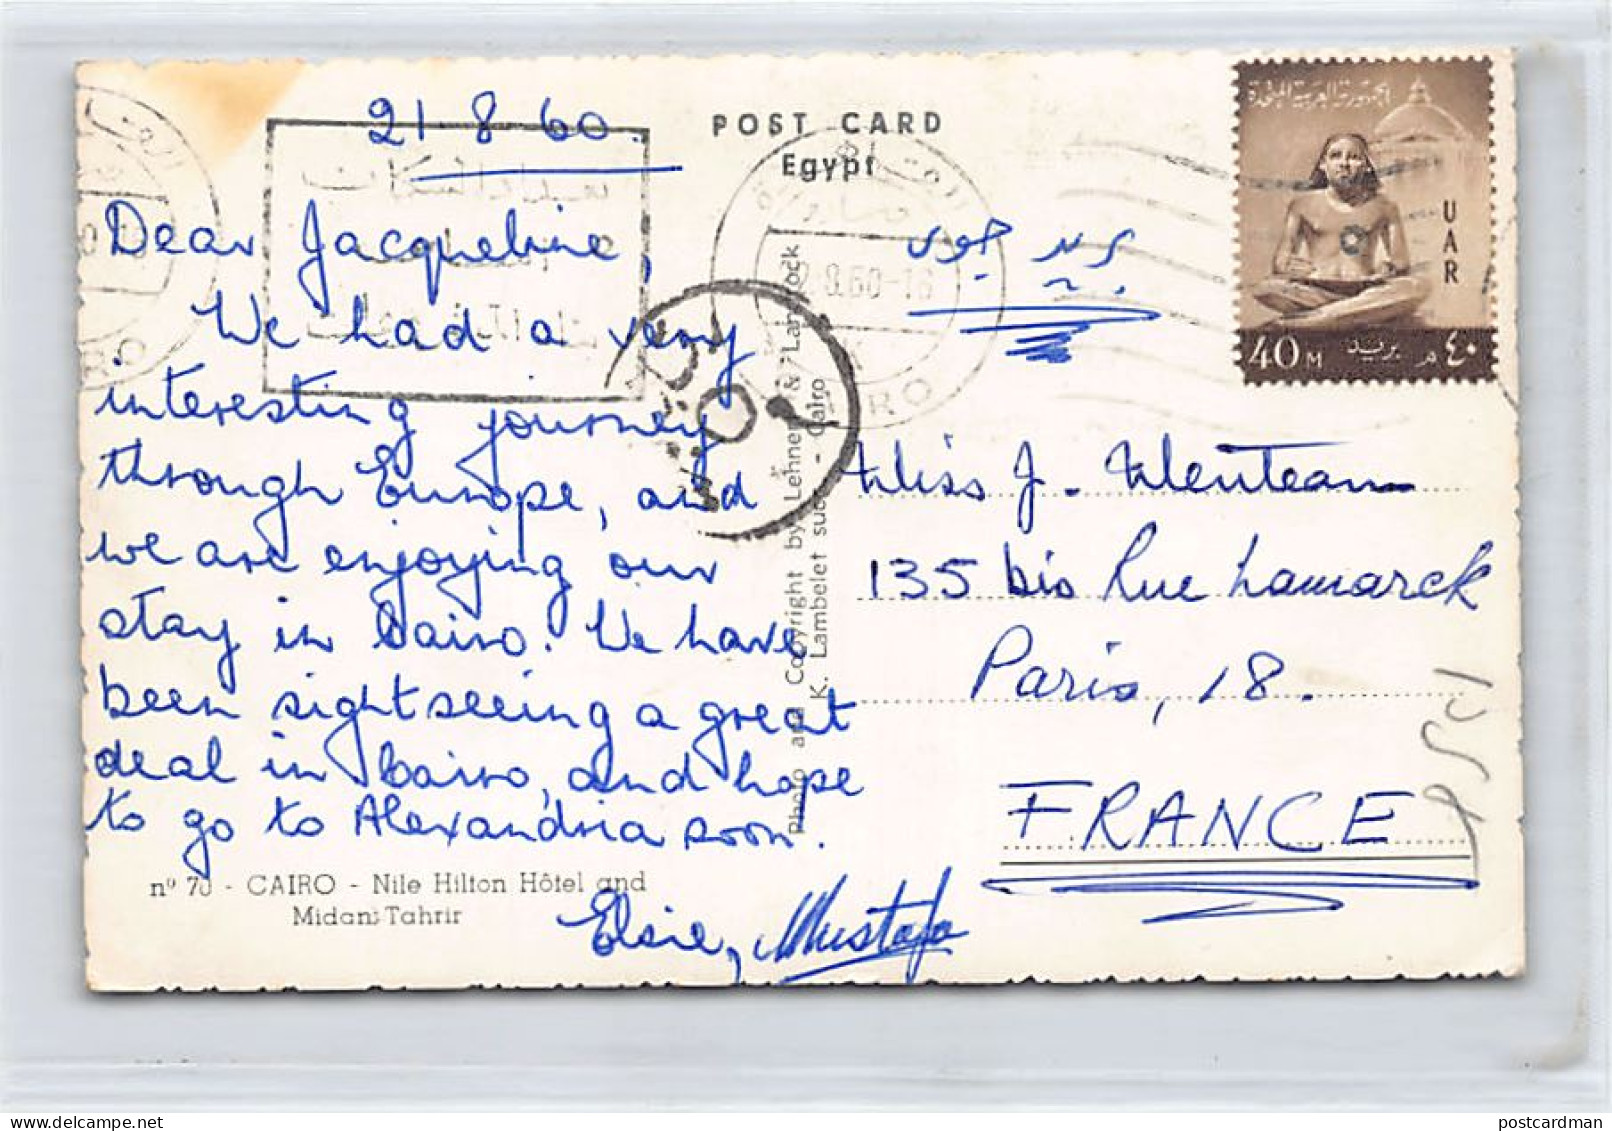 21-8-60.
POST CARD
Egypt
Dear Jacqueline,
We had a very
interesting journey
through Europe, and
we are enjoying our
stay in Cairo. We have
been sightseeing a great
deal in Cairo, and hope
to go to Alexandria soon.
Elsie, Mustafa
nº 70 - CAIRO - Nile Hilton Hôtel and
Midan Tahrir
Photo and Copyright by Lehnert & Landrock
K. Lambelet succ. - Cairo
بريد جوى
الجمهورية العربية المتحدة
UAR
40 M بريد ٤٠ م
8.60-16
CAIRO
Miss J.
135 bis Rue Lamarck
Paris, 18.
FRANCE
postcardman